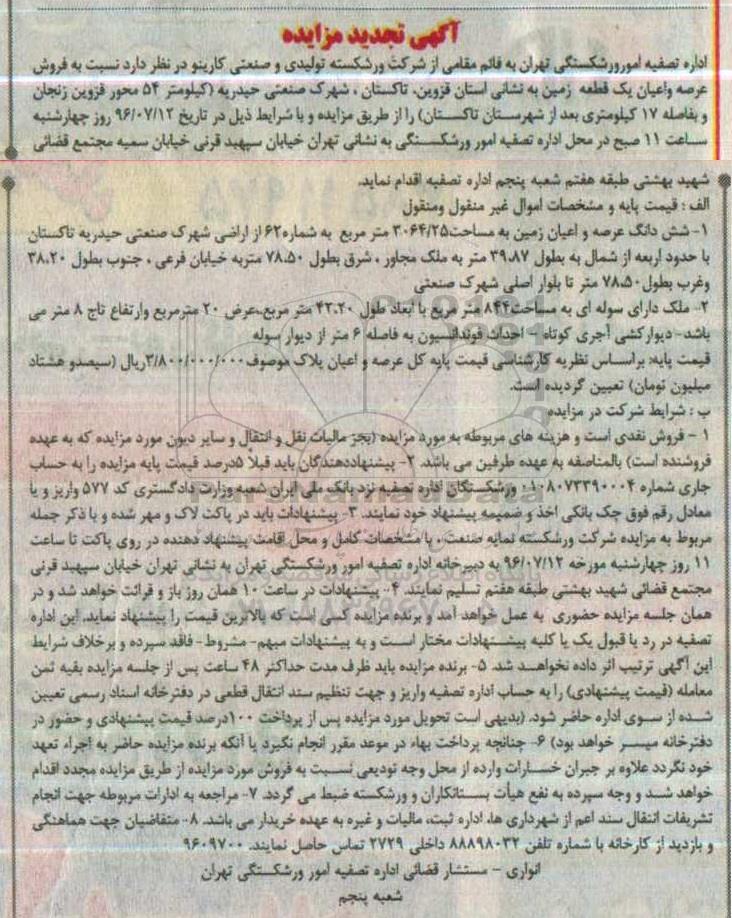 آگهی تجدید مزایده
اداره تصفیه امورورشکستگی تهران به قائم مقامی از شرکت ورشکسته تولیدی و صنعتی کارینو در نظر دارد نسبت به فروش
عرصه واعیان یک قطعه زمین به نشانی استان قزوین، تاکستان ، شهرک صنعتی حیدریه (کیلومتر ۵۴ محور قزوین زنجان
و بفاصله ۱۷ کیلومتری بعد از شهرستان تاکستان) را از طریق مزایده و با شرایط ذیل در تاریخ ۹۶/۰۷/۱۲ روز چهارشنبه
ساعت ۱۱ صبح در محل اداره تصفیه امور ورشکستگی به نشانی تهران خیابان سپهبد قرنی خیابان سمیه مجتمع قضائی
شهید بهشتی طبقه هفتم شعبه پنجم اداره تصفیه اقدام نماید.
الف : قیمت پایه و مشخصات اموال غیر منقول ومنقول
۱- شش دانگ عرصه و اعیان زمین به مساحت۳۰۶۴/۲۵ متر مربع به شماره۶۲ از اراضی شهرک صنعتی حیدریه تاکستان
با حدود اربعه از شمال به بطول ۳۹،۸۷ متر به ملک مجاور ، شرق بطول ۷۸،۵۰ متربه خیابان فرعی ، جنوب بطول ۳۸،۲۰
وغرب بطول۷۸،۵۰ متر تا بلوار اصلی شهرک صنعتی
۲- ملک دارای سوله ای به مساحت۸۴۴ متر مربع با ابعاد طول ۴۲،۲۰ متر مربع،عرض ۲۰ مترمربع وارتفاع تاج ۸ متر می
باشد- دیوارکشی آجری کوتاه - احداث فوندانسیون به فاصله ۶ متر از دیوار سوله
قیمت پایه: براساس نظریه کارشناسی قیمت پایه کل عرصه و اعیان پلاک موصوف۳/۸۰۰/۰۰۰/۰۰۰ریال (سیصدو هشتاد
میلیون تومان) تعیین گردیده است.
ب : شرایط شرکت در مزایده
۱ - فروش نقدی است و هزینه های مربوطه به مورد مزایده (بجز مالیات نقل و انتقال و سایر دیون مورد مزایده که به عهده
فروشنده است) بالمناصفه به عهده طرفین می باشد. ۲- پیشنهاددهندگان باید قبلا ۵درصد قیمت پایه مزایده را به حساب
جاری شماره ۰۱۰۸۰۷۳۳۹۰۰۰۴ ورشکستگان اداره تصفیه نزد بانک ملی ایران شعبه وزارت دادگستری کد ۵۷۷ واریز و یا
معادل رقم فوق چک بانکی اخذ و ضمیمه پیشنهاد خود نمایند. ۳- پیشنهادات باید در پاکت لاک و مهر شده و با ذکر جمله
مربوط به مزایده شرکت ورشکسته نمایه صنعت، با مشخصات کامل و محل اقامت پیشنهاد دهنده در روی پاکت تا ساعت
۱۱ روز چهارشنبه مورخه ۹۶/۰۷/۱۲ به دبیرخانه اداره تصفیه امور ورشکستگی تهران به نشانی تهران خیابان سپهبد قرنی
مجتمع قضائی شهید بهشتی طبقه هفتم تسلیم نمایند. ۴- پیشنهادات در ساعت ۱۰ همان روز باز و قرائت خواهد شد و در
همان جلسه مزایده حضوری به عمل خواهد آمد و برنده مزایده کسی است که بالاترین قیمت را پیشنهاد نماید. این اداره
تصفیه در رد یا قبول یک یا کلیه پیشنهادات مختار است و به پیشنهادات مبهم- مشروط- فاقد سپرده و برخلاف شرایط
این آگهی ترتیب اثر داده نخواهد شد. ۵- برنده مزایده باید ظرف مدت حداکثر ۴۸ ساعت پس از جلسه مزایده بقیه ثمن
معامله (قیمت پیشنهادی) را به حساب اداره تصفیه واریز و جهت تنظیم سند انتقال قطعی در دفترخانه اسناد رسمی تعیین
شده از سوی اداره حاضر شود. (بدیهی است تحویل مورد مزایده پس از پرداخت ۱۰۰درصد قیمت پیشنهادی و حضور در
دفترخانه میسر خواهد بود) ۶- چنانچه پرداخت بهاء در موعد مقرر انجام نگیرد یا آنکه برنده مزایده حاضر به اجراء تعهد
خود نگردد علاوه بر جبران خسارات وارده از محل وجه تودیعی نسبت به فروش مورد مزایده از طریق مزایده مجدد اقدام
خواهد شد و وجه سپرده به نفع هیأت بستانکاران و ورشکسته ضبط می گردد. ۷- مراجعه به ادارات مربوطه جهت انجام
تشریفات انتقال سند اعم از شهرداری ها، اداره ثبت، مالیات و غیره به عهده خریدار می باشد. ۸- متقاضیان جهت هماهنگی
و بازدید از کارخانه با شماره تلفن ۸۸۸۹۸۰۳۲ داخلی ۲۷۲۹ تماس حاصل نمایند. ۹۶۰۹۷۰۰
انواری - مستشار قضائی اداره تصفیه امور ورشکستگی تهران
شعبه پنجم